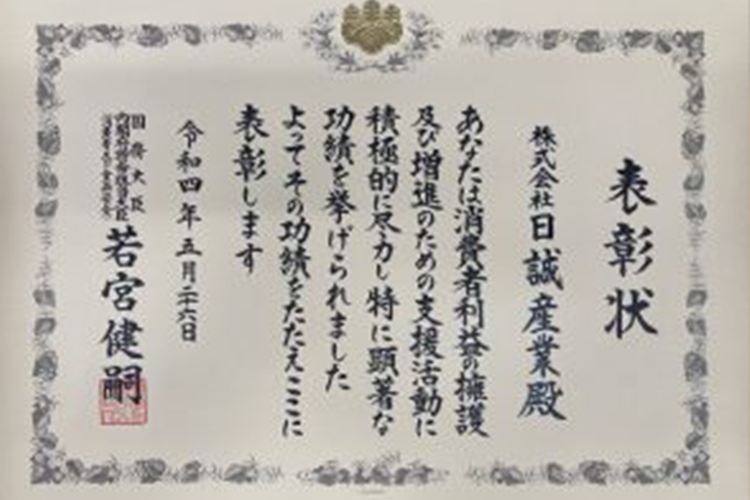 表彰状
株式会社日誠産業殿
あなたは消費者利益の擁護
及び増進のための支援活動に
積極的に尽力し特に顕著な
功績を挙げられました
よってその功績をたたえここに
表彰します
令和四年五月二十六日
国務大臣
若宮健嗣